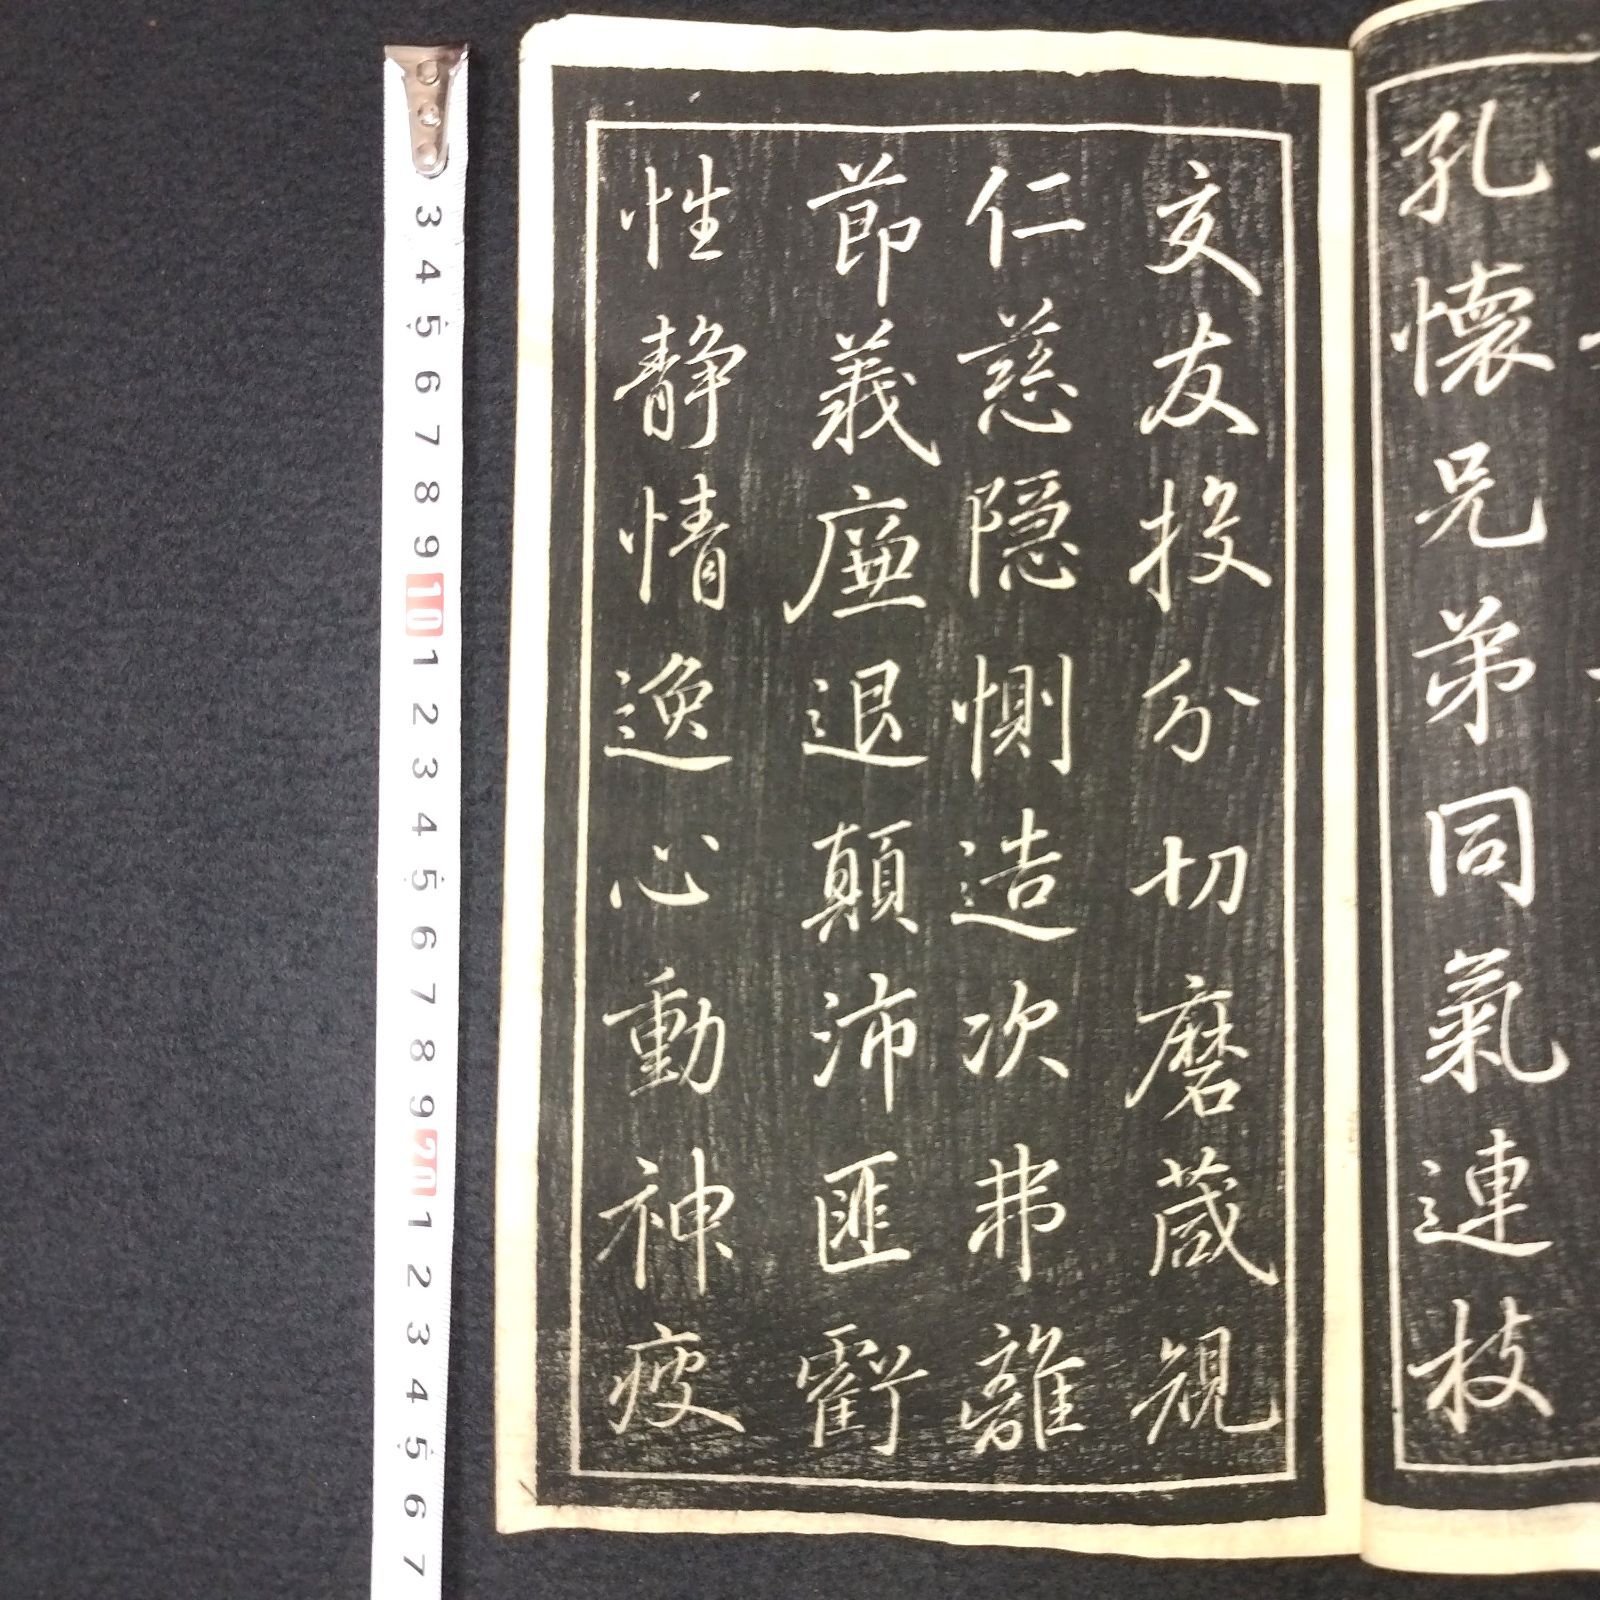 孔懷兄弟同氣連枝
交友投分切磨葴規
仁慈隱惻造次弗離
節義廉退顛沛匪虧
性静情逸心動神疲
3 4 5 6 7 8 9 10 1 2 3 4 5 6 7 8 9 20 1 2 3 4 5 6 7